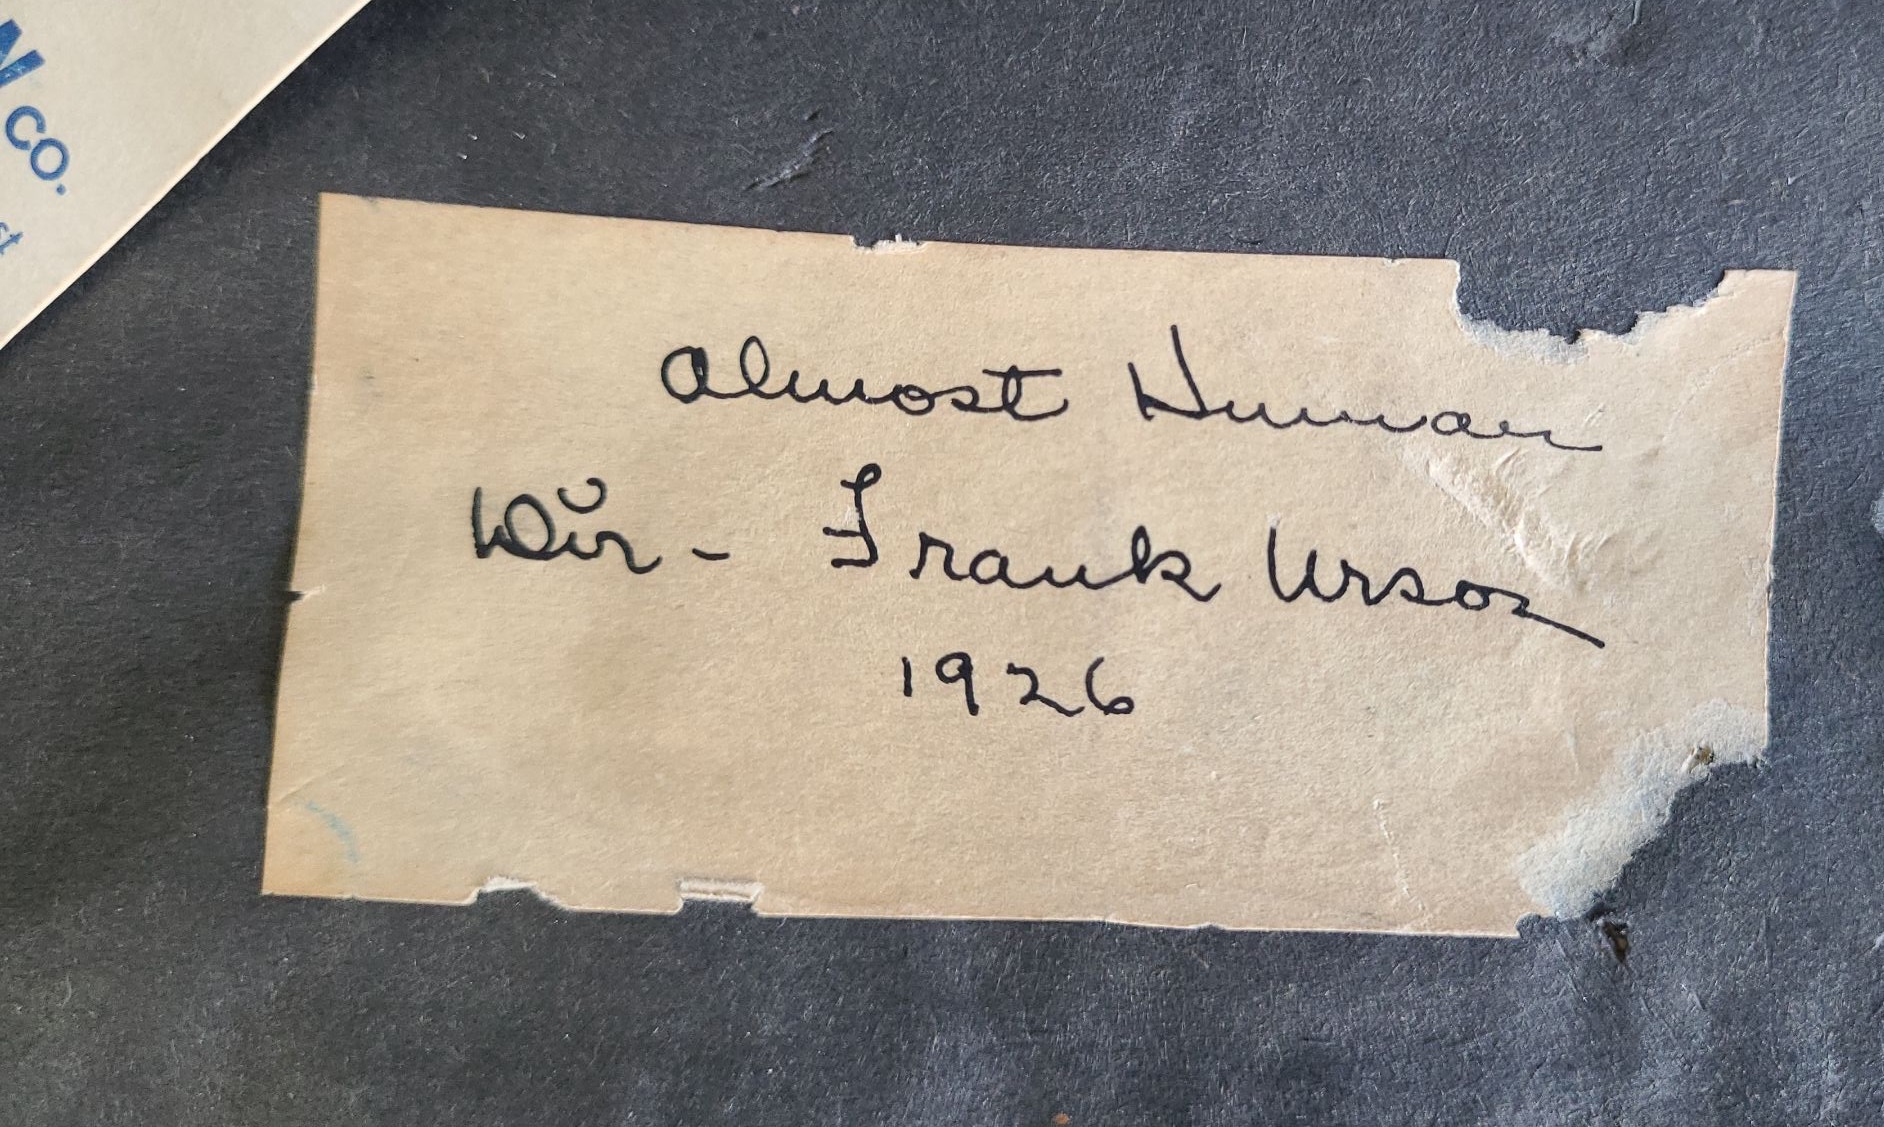 N CO.
st
Almost Human
Dir - Frank Urson
1926